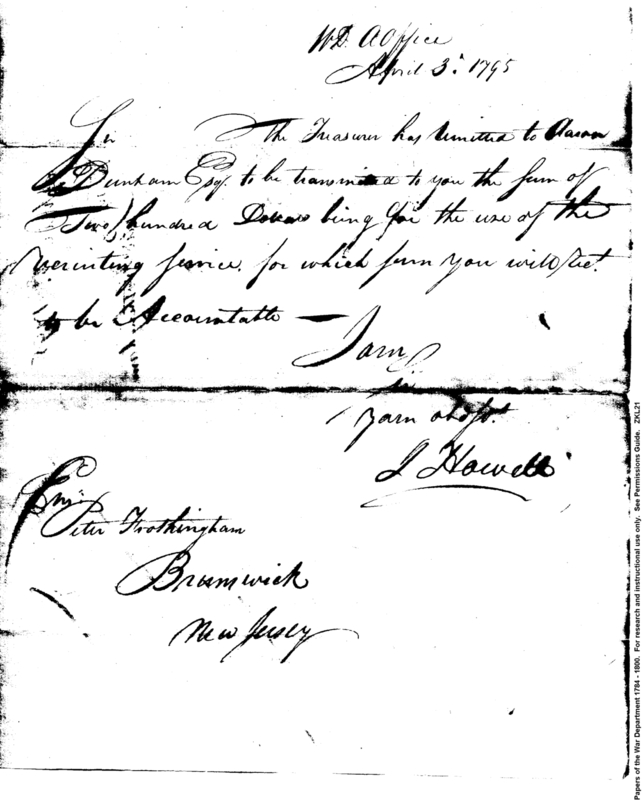 WD. AOffice
April 3. 1795
Sir
The Treasurer has remitted to Aaron
Dunham Esqr. to be transmitted to you the sum of
Two hundred Dollars being for the use of the
recruiting service. for which sum you will
to be Accountable —
I am
Sir
J Howell
Ens:
Peter Frothingham
Brunswick
New Jersey
Papers of the War Department 1784 - 1800. For research and instructional use only. See Permissions Guide. ZKU21